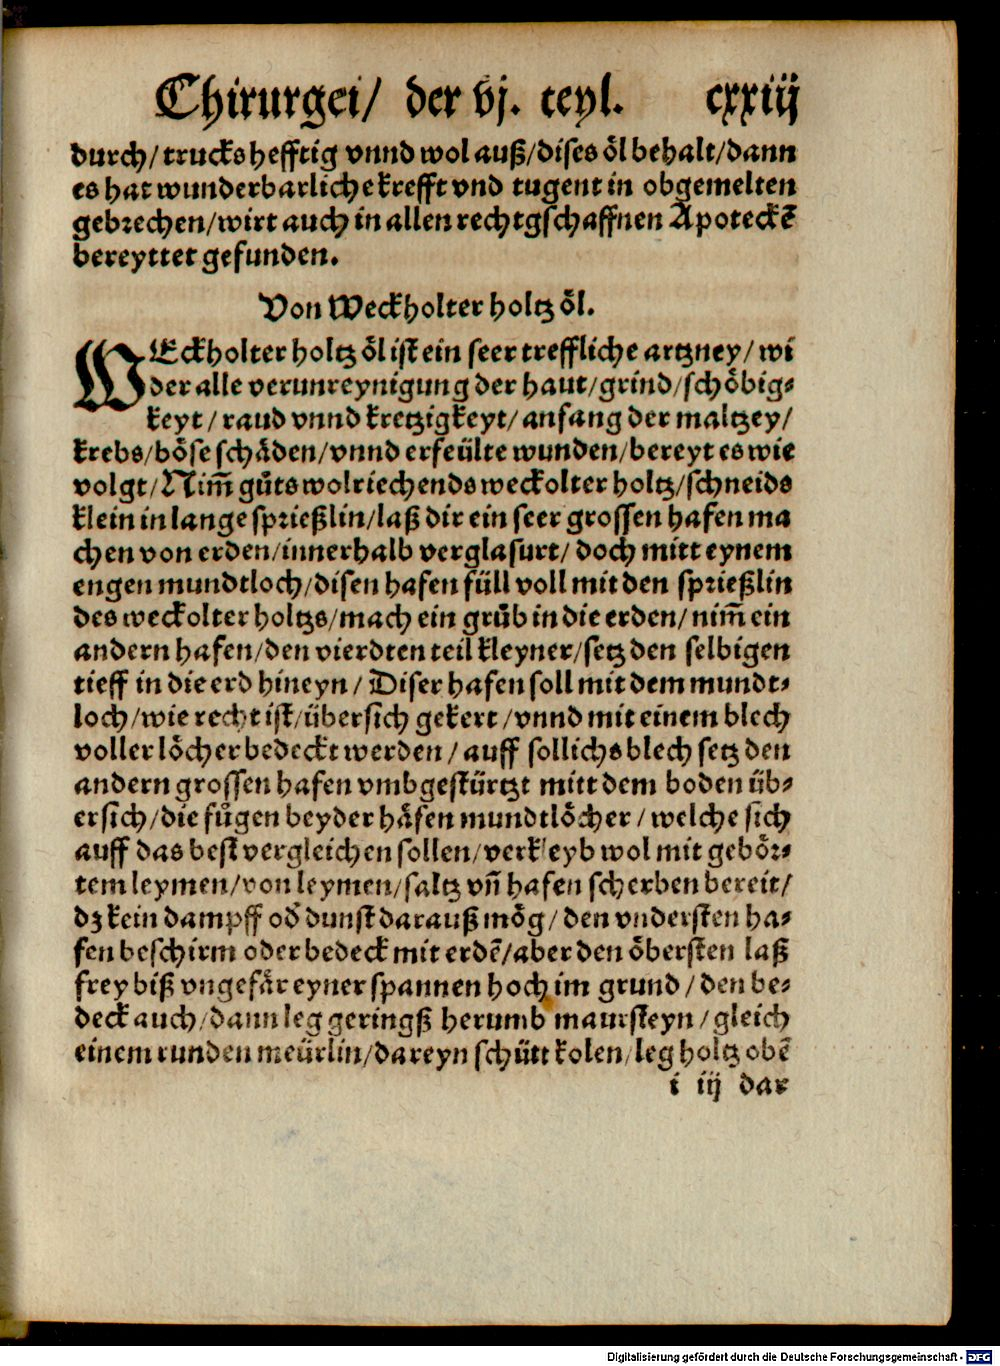 Chirurgei/ der vj. teyl. cxxiij
durch/trucks hefftig vnnd wol auß/dises öl behalt/dann
es hat wunderbarliche krefft vnd tugent in obgemelten
gebrechen/wirt auch in allen rechtgschaffnen Apoteckē
bereyttet gefunden.
Von Weckholter holtz öl.
WEckholter holtz öl ist ein seer treffliche artzney/ wi
der alle verunreynigung der haut/grind/schöbig⸗
keyt/ raud vnnd kretzigkeyt/ anfang der maltzey/
krebs/böse schäden/vnnd erfeülte wunden/bereyt es wie
volgt/Nim̄ gůts wolriechends weckolter holtz/schneids
klein in lange sprießlin/laß dir ein seer grossen hafen ma
chen von erden/innerhalb verglasurt/ doch mitt eynem
engen mundtloch/disen hafen füll voll mit den sprießlin
des weckolter holtzs/mach ein grůb in die erden/nim̄ ein
andern hafen/den vierdten teil kleyner/setz den selbigen
tieff in die erd hineyn/ Diser hafen soll mit dem mundt⸗
loch/wie recht ist/übersich gekert/vnnd mit einem blech
voller löcher bedeckt werden/ auff sollichs blech setz den
andern grossen hafen vmbgestürtzt mitt dem boden üb⸗
ersich/die fůgen beyder häfen mundtlöcher/ welche sich
auff das best vergleichen sollen/verkleyb wol mit gebör⸗
tem leymen/von leymen/saltz vn̄ hafen scherben bereit/
dz kein dampff od̕ dunst darauß mög/ den vndersten ha⸗
fen beschirm oder bedeck mit erdē/aber den öbersten laß
frey biß vngefär eyner spannen hoch im grund/ den be⸗
deck auch/dann leg geringß herumb maursteyn/gleich
einem runden meürlin/dareyn schütt kolen/leg holtz obē
i iij dar
Digitalisierung gefördert durch die Deutsche Forschungsgemeinschaft - DFG